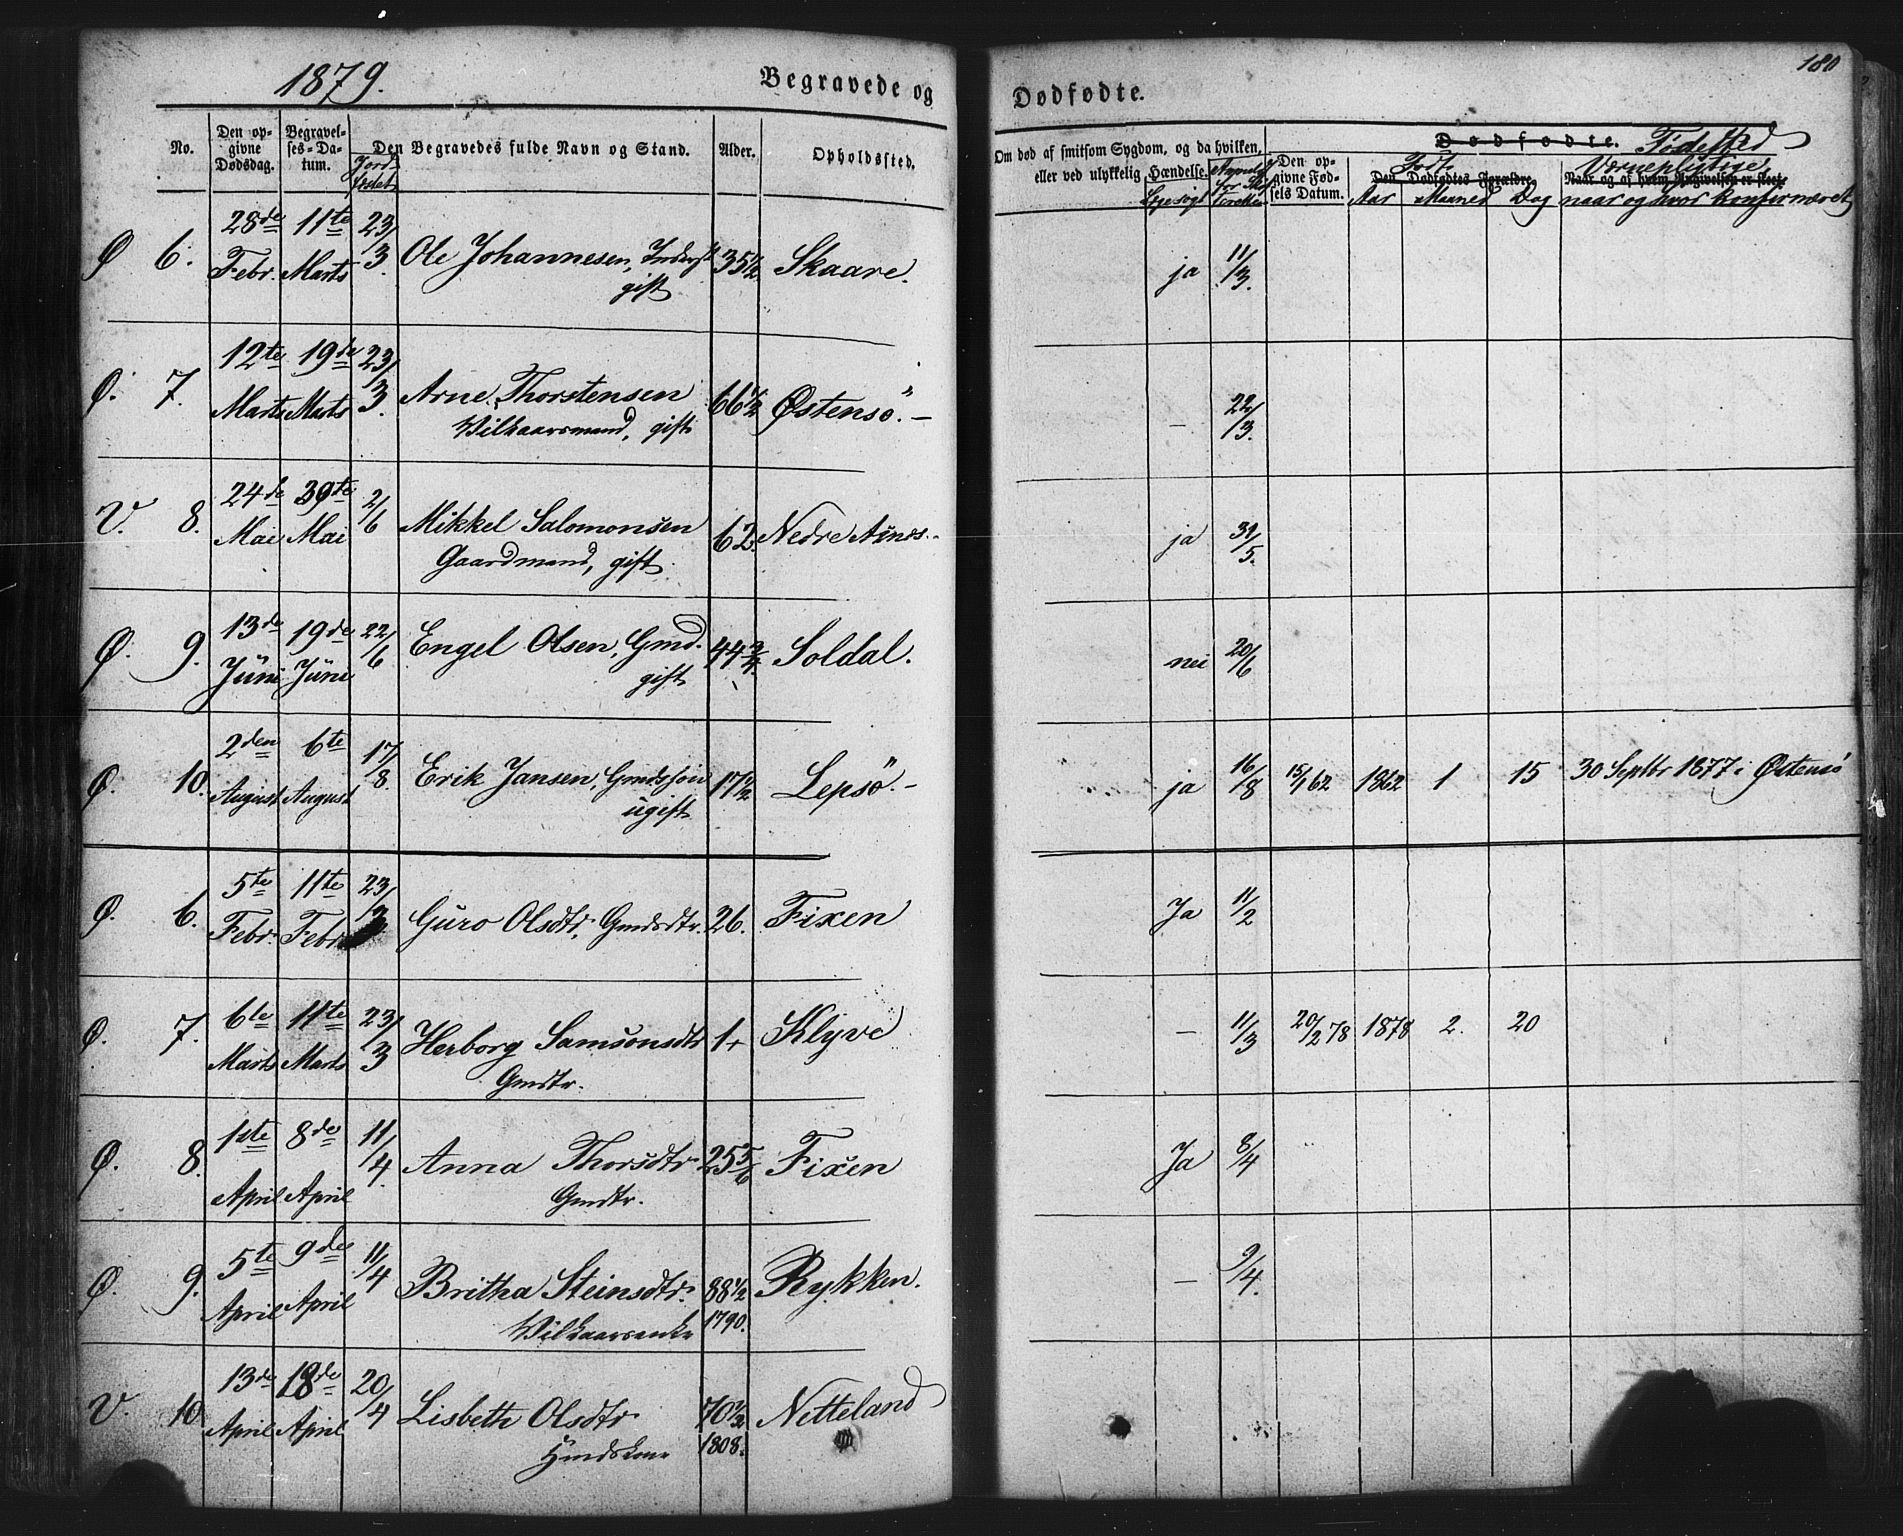 1879. Begravede og Dødfødte. 180
No. Den opgivne Dødsdag. Begravelses-Datum. Jordfæstet Den Begravedes fulde Navn og Stand. Alder. Opholdssted. Om død af smitsom Sygdom, og da hvilken, eller ved ulykkelig Hændelse. Lægesøgt Den opgivne Fødsels Datum. Dødfødte. Fødested
Født Den Dødfødtes Forældre. Værnepligtige
Aar Maaned Dag Naar og af hvem Angivelsen er skeet. naar og hvor konfirmeret
Ø 6. 28de Febr. 11te Marts 23/3. Ole Johannesen, gift 35½ Skaare. ja 11/3.
Ø. 7. 12te Marts 19de Marts 23/3. Arne Thorstensen 66½ Østensö. – 22/3.
Vilkaarsmand, gift
V. 8. 24de Mai 30te Mai 2/6 Mikkel Salomonsen 62. Nedre Alnes. ja 31/5.
Gaardmand, gift
Ø. 9. 13de Jüni 19de Jüni 22/6 Engel Olsen, Gmd. 44¾ Soldal. nei 20/6
gift
Ø. 10. 2den August 6te August 17/8. Erik Jansen, Gmdssøn 17½ Lepsö. ja 16/8 15/1 62 1862 1 15 30 Septbr 1877 i Østensö
ugift
Ø. 6. 5te Febr. 11te Febr. 23/3 Guro Olsdtr, Gmdsdtr. 26. Fixen Ja 11/2
Ø. 7. 6te Marts 11te Marts 23/3 Herborg Samsonsdtr 1. Klyve – 11/3 20/2 78 1878 2. 20
Gmdtr.
Ø. 8. 1ste April 8de April 11/4. Anna Thorsdtr 25 5/6 Fixen Ja 8/4
Gmdtr.
Ø. 9. 5te April 9de April 11/4 Britha Steinsdtr. 88½ Rykken. – 9/4.
Vilkaarsenke 1790.
V. 10 13de April 18de April 20/4 Lisbeth Olsdtr 70½ Netteland
Hmdskone 1808.